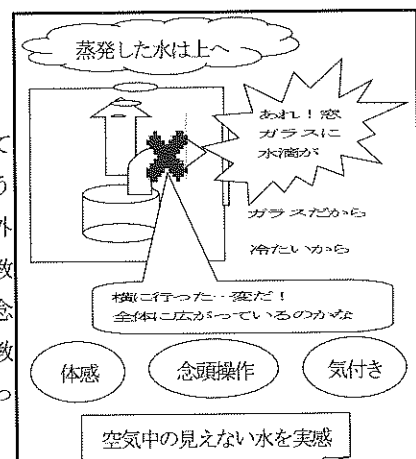 蒸発した水は上へ
あれ！窓
ガラスに
水滴が
ガラスだから
冷たいから
横に行った…変だ！
全体に広がっているのかな
体感
念頭操作
気付き
空気中の見えない水を実感
て
う
外
教
念
教
っ